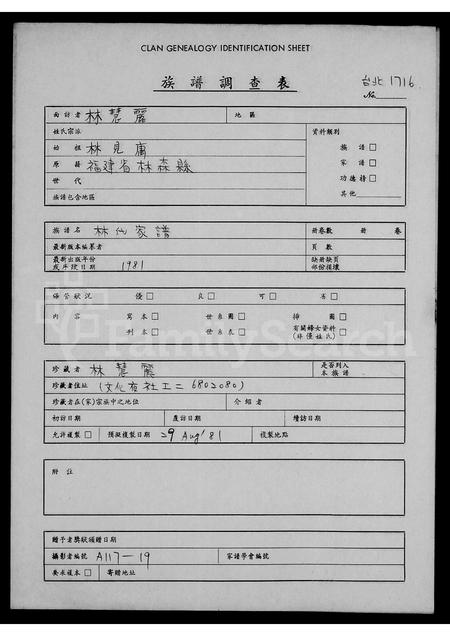 CLAN GENEALOGY IDENTIFICATION SHEET
族譜調查表
台北 1716
No.
面訪者 林慧麗 地區
姓氏宗派 資料類別
始祖 林見庸 族譜□
原籍 福建省林森縣 家譜□
世代 功德榜□
族譜包含地區 其他
族譜名 林氏家譜 冊卷數 冊 卷
最新版本編纂者 頁數
最新出版年份或手諄日期 1981 缺冊缺頁部份損壞
保管狀況 優□ 良□ 可□ 劣□
內容 寫本□ 世系圖□ 神圖□
刊本□ 世系表□ 有關婦女資料(非僅姓氏)□
珍藏者 林慧麗 是否列入本族譜
珍藏者住址 (文化有社工二 6802080)
珍藏者在(家)宗族中之地位 介紹者
初訪日期 覆訪日期 續訪日期
允許複製□ 預擬複製日期 29 Aug' 81 複製地點
附註
贈予者獎狀頒贈日期
攝影者編號 A117-19 家譜學會編號
要求複本□ 寄贈地址
FamilySearch